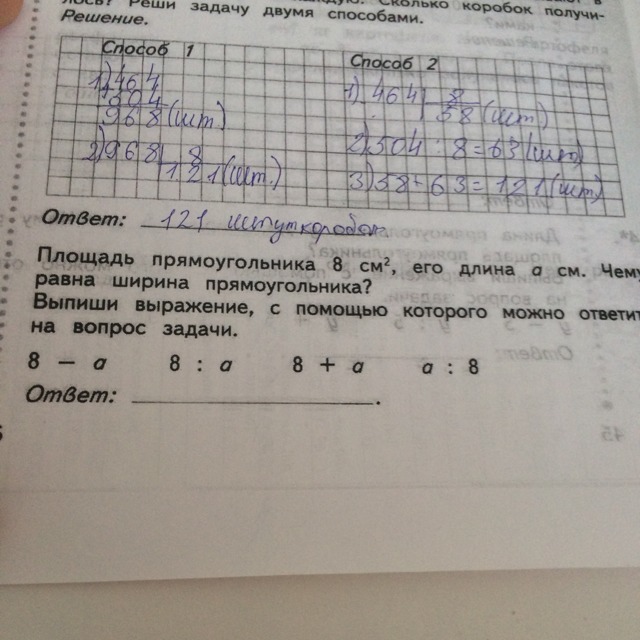 лось? Реши задачу двумя способами. Сколько коробок получи-
Решение.
Способ 1
1) 464
504
968 (шт)
2) 968 8
121 (шт.)
Способ 2
1) 464 8
58 (шт)
2) 504 : 8 = 63 (шт)
3) 58 + 63 = 121 (шт)
Ответ: 121 штук коробок.
Площадь прямоугольника 8 см², его длина a см. Чему
равна ширина прямоугольника?
Выпиши выражение, с помощью которого можно ответит
на вопрос задачи.
8 − a 8 : a 8 + a a : 8
Ответ: .